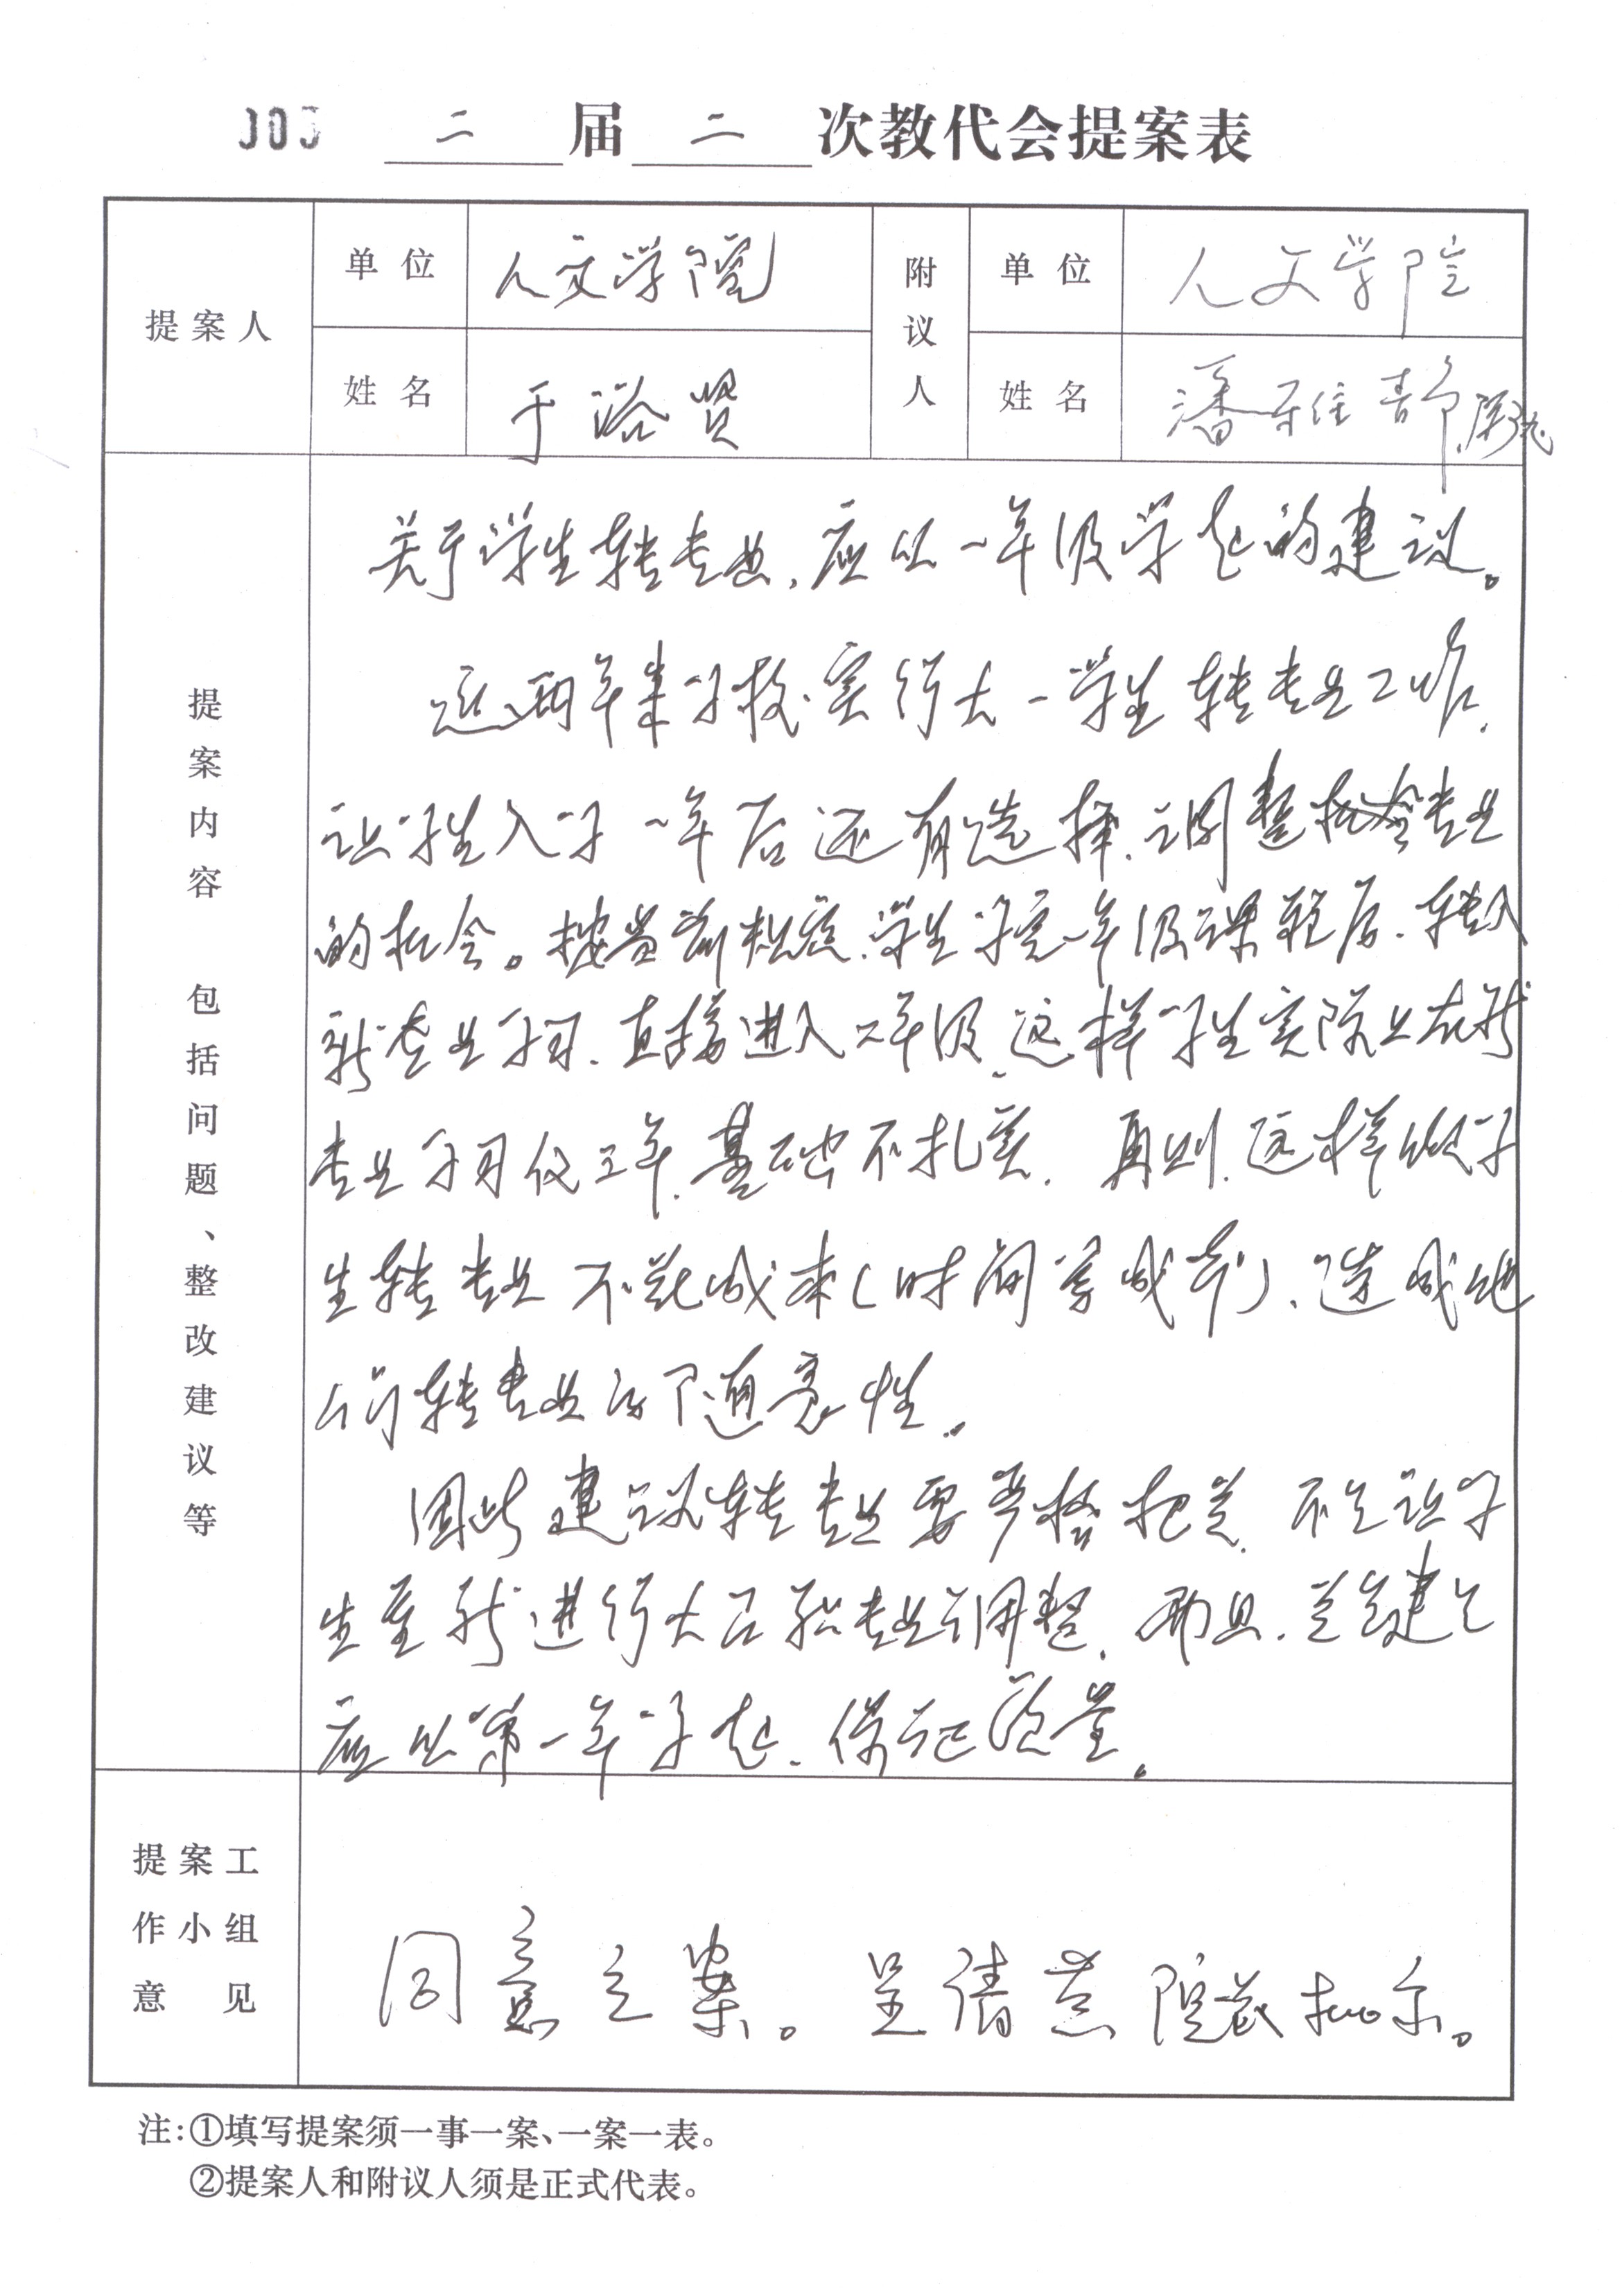 二 届 二 次教代会提案表
提案人
单位
人文学院
附议人
单位
人文学院
姓名
于 贤
姓名
潘雅静
提案内容 包括问题、整改建议等
关于学生转专业,应从一年级学起的建议。
近两年来学校实行大一学生转专业工作,
让学生入学一年后还有选择、调整专业
的机会。按当前规定,学生学完一年级课程后,转入
新专业学习,直接进入二年级,这样学生实际上在新
专业学习仅三年,基础不扎实,再则,这样做学
生转专业不花成本(时间等成本),造成他
们转专业的随意性。
因此建议转专业要严格把关,不能让学
生重新进行大面积专业调整,而且,关键是
应从第一年学起,保证质量。
提案工作小组意见
同意立案。呈请 院长批示。
注:①填写提案须一事一案、一案一表。
②提案人和附议人须是正式代表。